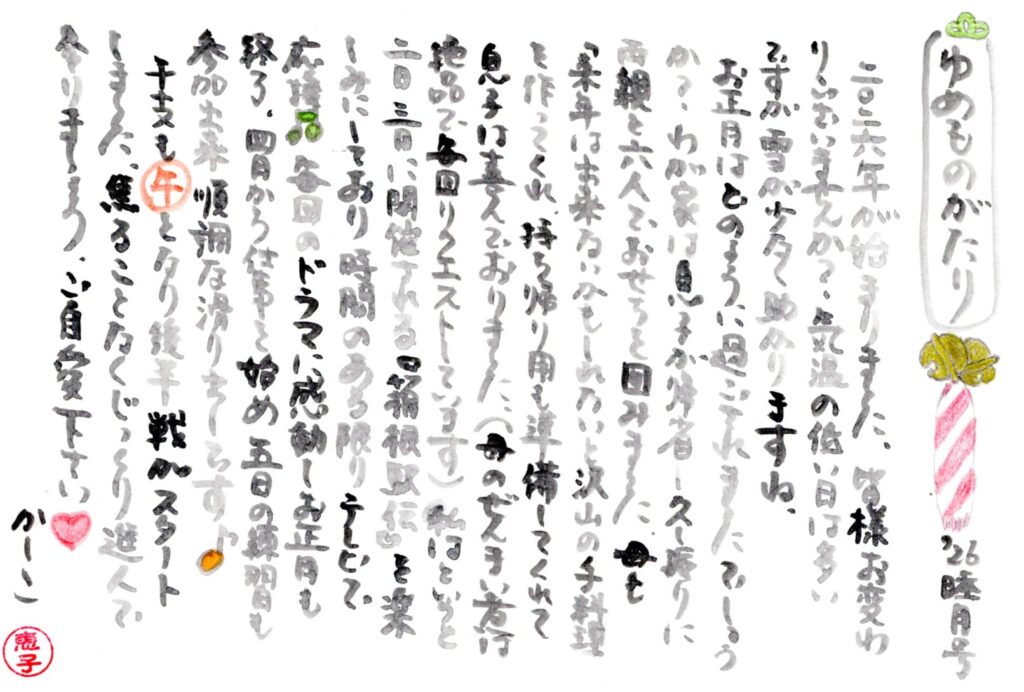 ゆめものがたり
'26 睦月号
二〇二六年が始まりました、皆様お変わ
りございませんか？、気温の低い日は多い
ですが雪が少なく助かりますね、
お正月はどのように過ごされましたでしょう
か？、わが家は息子が帰省し久し振りに
両親と六人でおせちを囲みました、母も
「来年は出来ないかもしれない」と沢山の手料理
を作ってくれ、持ち帰り用も準備してくれて
息子は喜んでおりました、（母のぜんまい煮は
絶品で毎回リクエストしています）私はというと
二日三日に開催される「箱根駅伝」を楽
しみにしており時間のある限りテレビで
応援 毎回のドラマに感動しお正月も
終了、四日から仕事を始め五日の練習も
参加出来順調な滑り出しです♪
干支も午となり後半戦がスタート
しました、焦ることなくじっくり進んで
参りましょう、ご自愛下さい
かしこ
恵子